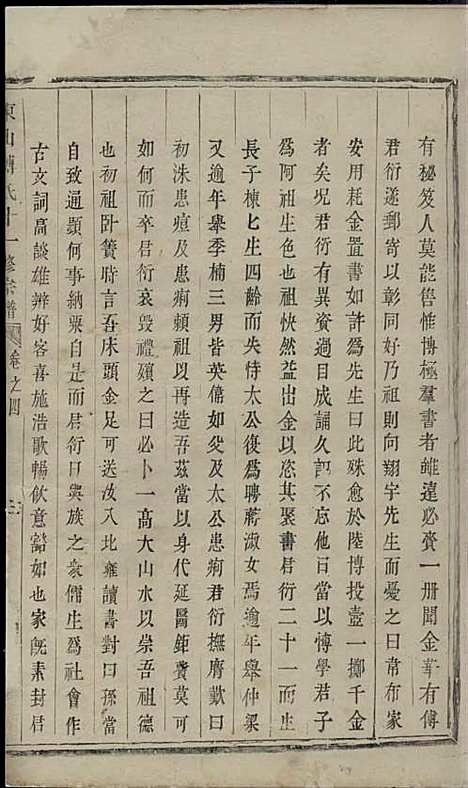 有秘笈人莫能售惟博極羣書者雖遠必賫一冊聞金華有傅
君衍遂郵寄以彰同好乃祖則向翔宇先生而憂之曰常布家
安用耗金置書如許為先生曰此殊愈於陸博投壺一擲千金
者矣况君衍有異資過目成誦久記不忘他日當以博學君子
為阿祖生色也祖快然益出金以恣其聚書君衍二十一而生
長子棟七生四齡而失恃太公復為聘蔣淑女焉逾年舉仲梁
又逾年舉季楠三男皆英偹如父及太公患痢君衍撫膺歎曰
初洙患痘及患痢賴祖以再造吾茲當以身代延醫鉅費莫可
如何而卒君衍哀毀禮殯之曰必卜一高大山水以崇吾祖德
也初祖卧簀時言吾床頭金足可送汝入北雍讀書對曰孫當
自致通顯何事納粟白是而君衍日與族之衆儒生為社會作
古文詞高談雄辨好客喜施浩歌暢飲意豁如也家旣素封君
東山傅氏十一修宗譜 卷之四